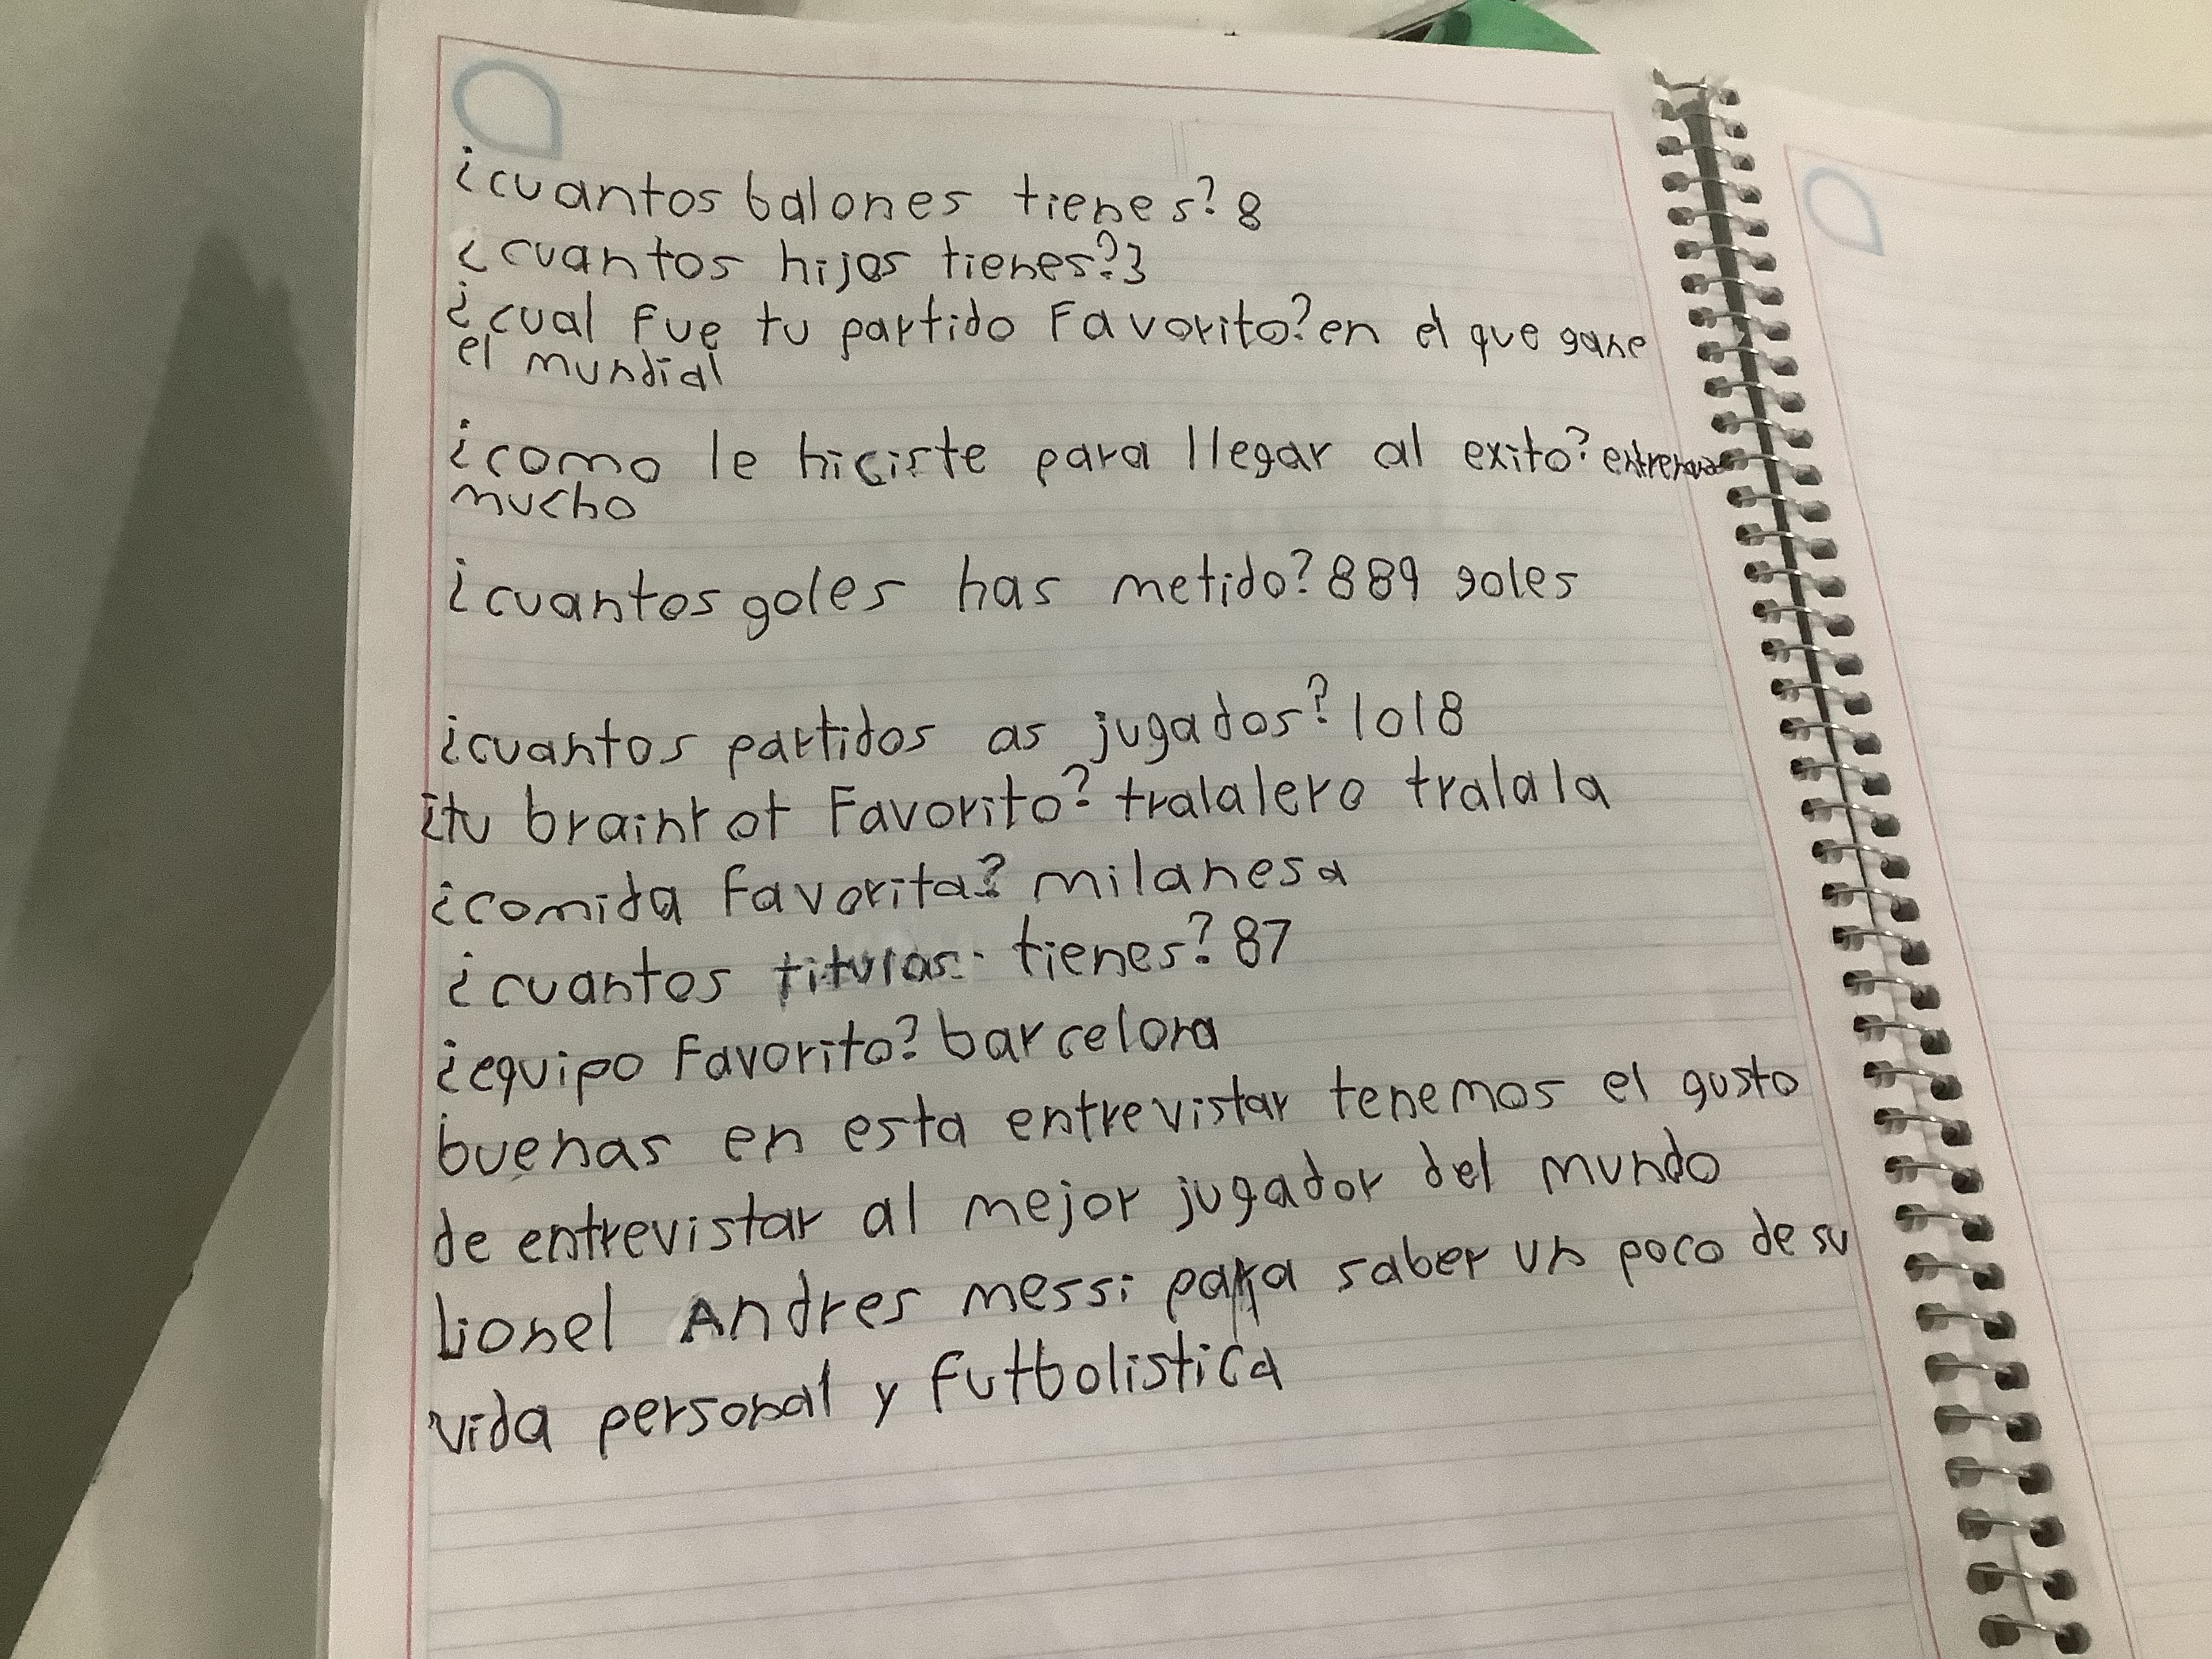 ¿cuantos balones tienes? 8
¿cuantos hijos tienes? 3
¿cual fue tu partido Favorito? en el que gane
el mundial
¿como le hiciste para llegar al exito?
mucho
¿cuantos goles has metido? 889 goles
¿cuantos partidos as jugados? 1018
¿tu brainrot Favorito? tralalero tralala
¿comida Favorita? milanesa
¿cuantos titulos tienes? 87
¿equipo Favorito? barcelona
buenas en esta entrevistar tenemos el gusto
de entrevistar al mejor jugador del mundo
Lionel Andres messi para saber un poco de su
vida personal y futbolistica